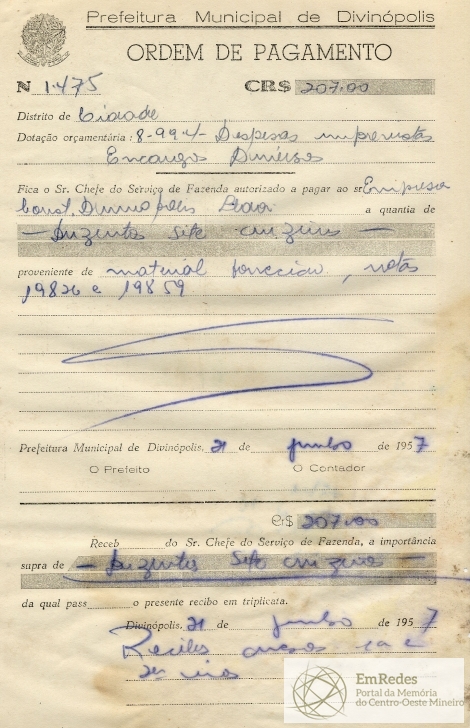 Prefeitura Municipal de Divinópolis
ORDEM DE PAGAMENTO
N 1.475 CR$ 207,00
Distrito de Cidade
Dotação orçamentária: 8-99-4- Despesas imprevistas
Encargos Diversos
Fica o Sr. Chefe do Serviço de Fazenda autorizado a pagar ao sr. Empresa
Const. Divinopolis a quantia de
— Duzentos sete cruzeiros —
proveniente de material fornecido, notas
19826 e 19859
Prefeitura Municipal de Divinópolis, 21 de junho de 1957
O Prefeito O Contador
Cr$ 207,00
Receb do Sr. Chefe do Serviço de Fazenda, a importância
supra de — Duzentos sete cruzeiros —
da qual pass o presente recibo em triplicata.
Divinópolis, 21 de junho de 1957
EmRedes
Portal da Memória
do Centro-Oeste Mineiro